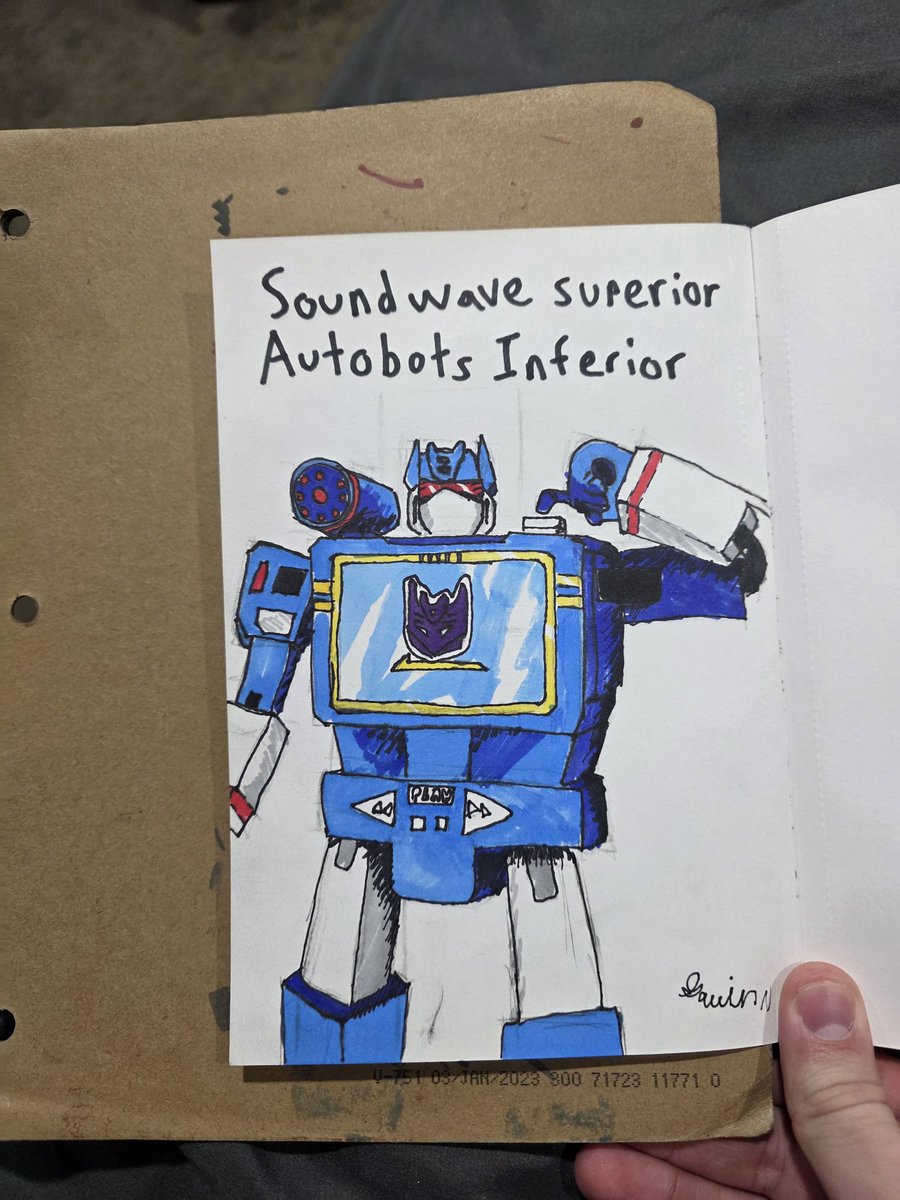 Soundwave superior
Autobots Inferior
PLAY
V-751 03/JAN/2023 800 71723 11771 0